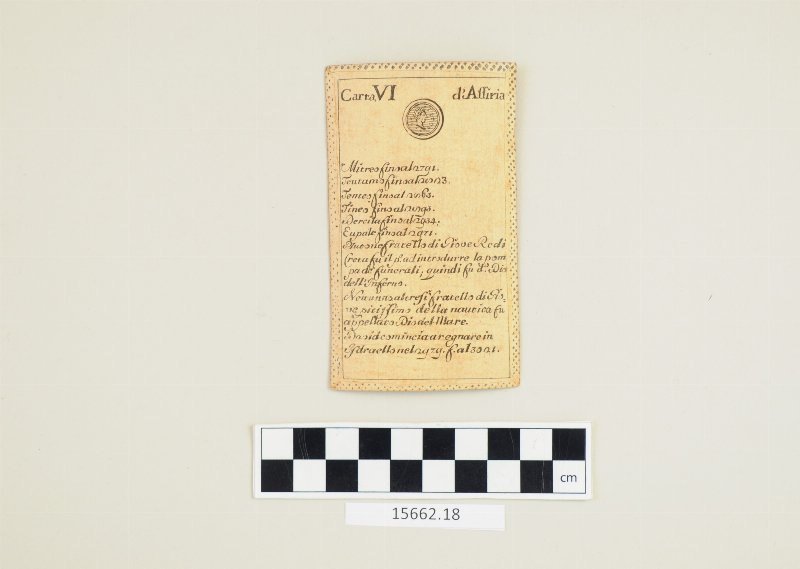 Carta VI d'Assiria
Mitreo fin sal 2791.
fin sal
fin sal
Tineo fin sal
Dercilo fin sal 2934.
Eupale fin sal 2971.
fratello di Giove Re di
Creta fu il p.º ad introdurre la pom
pa de' funerali, quindi fu d.º Dio
dell'Inferno.
Nettunno altresì fratello di Gio-
ve peritissimo della nautica fu
appellato Dio del Mare.
David comincia a regnare in
Isdraello nel 2979. f. al
cm
15662.18